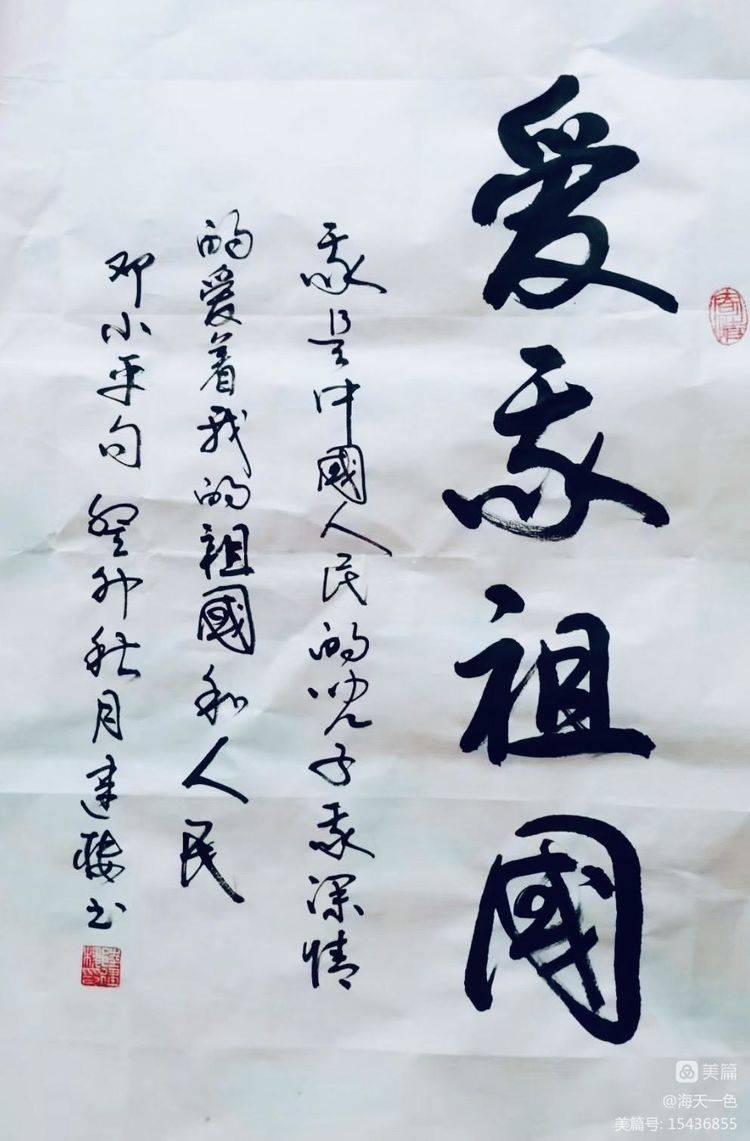 爱我祖國
我是中國人民的兒子我深情
的爱着我的祖國和人民
邓小平句 癸卯秋月建楼书
美篇
@海天一色
美篇号: 15436855